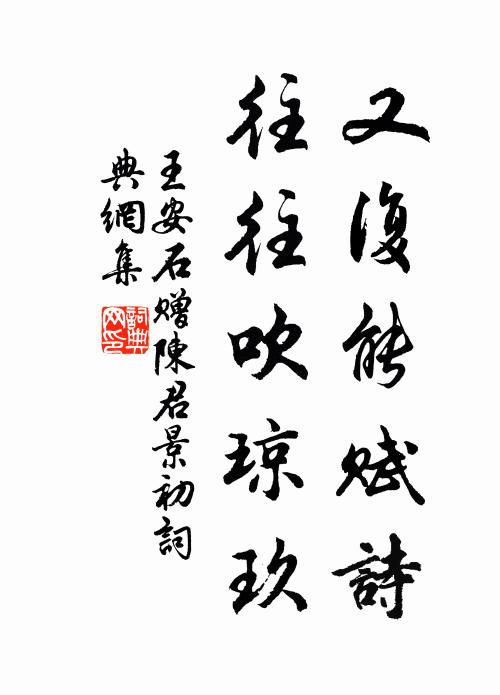 又復能賦詩
往往吹琼玖
王安石赠陳君景初詞
典網集
詞典
网印